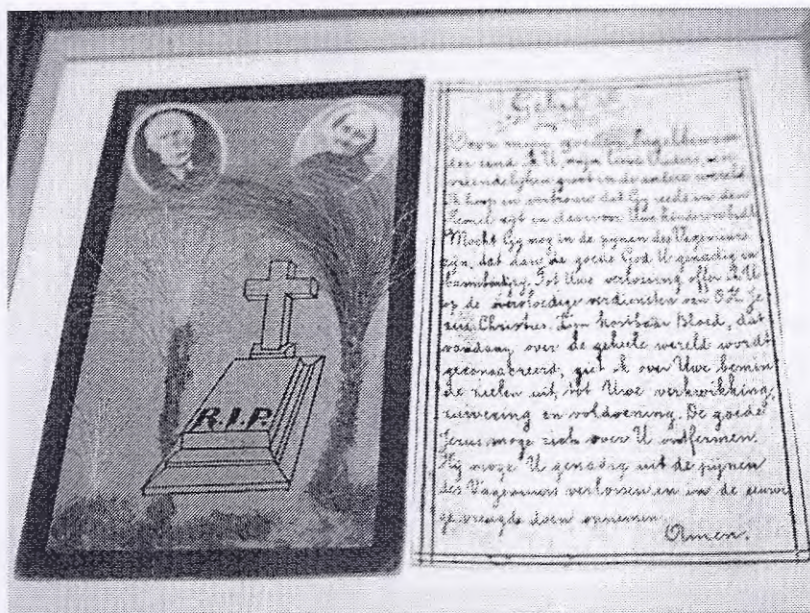 R.I.P.
Gebed
Door mijn goeden Engelbewaar
der zend ik U, mijn lieve Ouders, een
vriendelijken groet in de andere wereld
Ik hoop en vertrouw dat Gij reeds in den
Hemel zijt en daarvoor Uwe kinderen bidt
Mocht Gij nog in de pijnen des Vagevuurs
zijn, dat dan de goede God U genadig en
barmhartig. Tot Uwe verlossing offer ik U
op de overvloedige verdiensten van O.H. Je
zus Christus. Zijn kostbaar Bloed, dat
vandaag over de geheele wereld wordt
geconsacreerd, giet ik over Uwe bemin
de zielen uit, tot Uwe verkwikking,
zuivering en voldoening. De goede
Jezus moge zich over U ontfermen.
Hij moge U genadig uit de pijnen
des Vagevuurs verlossen en in de eeuwi
ge vreugde doen opnemen.
Amen.